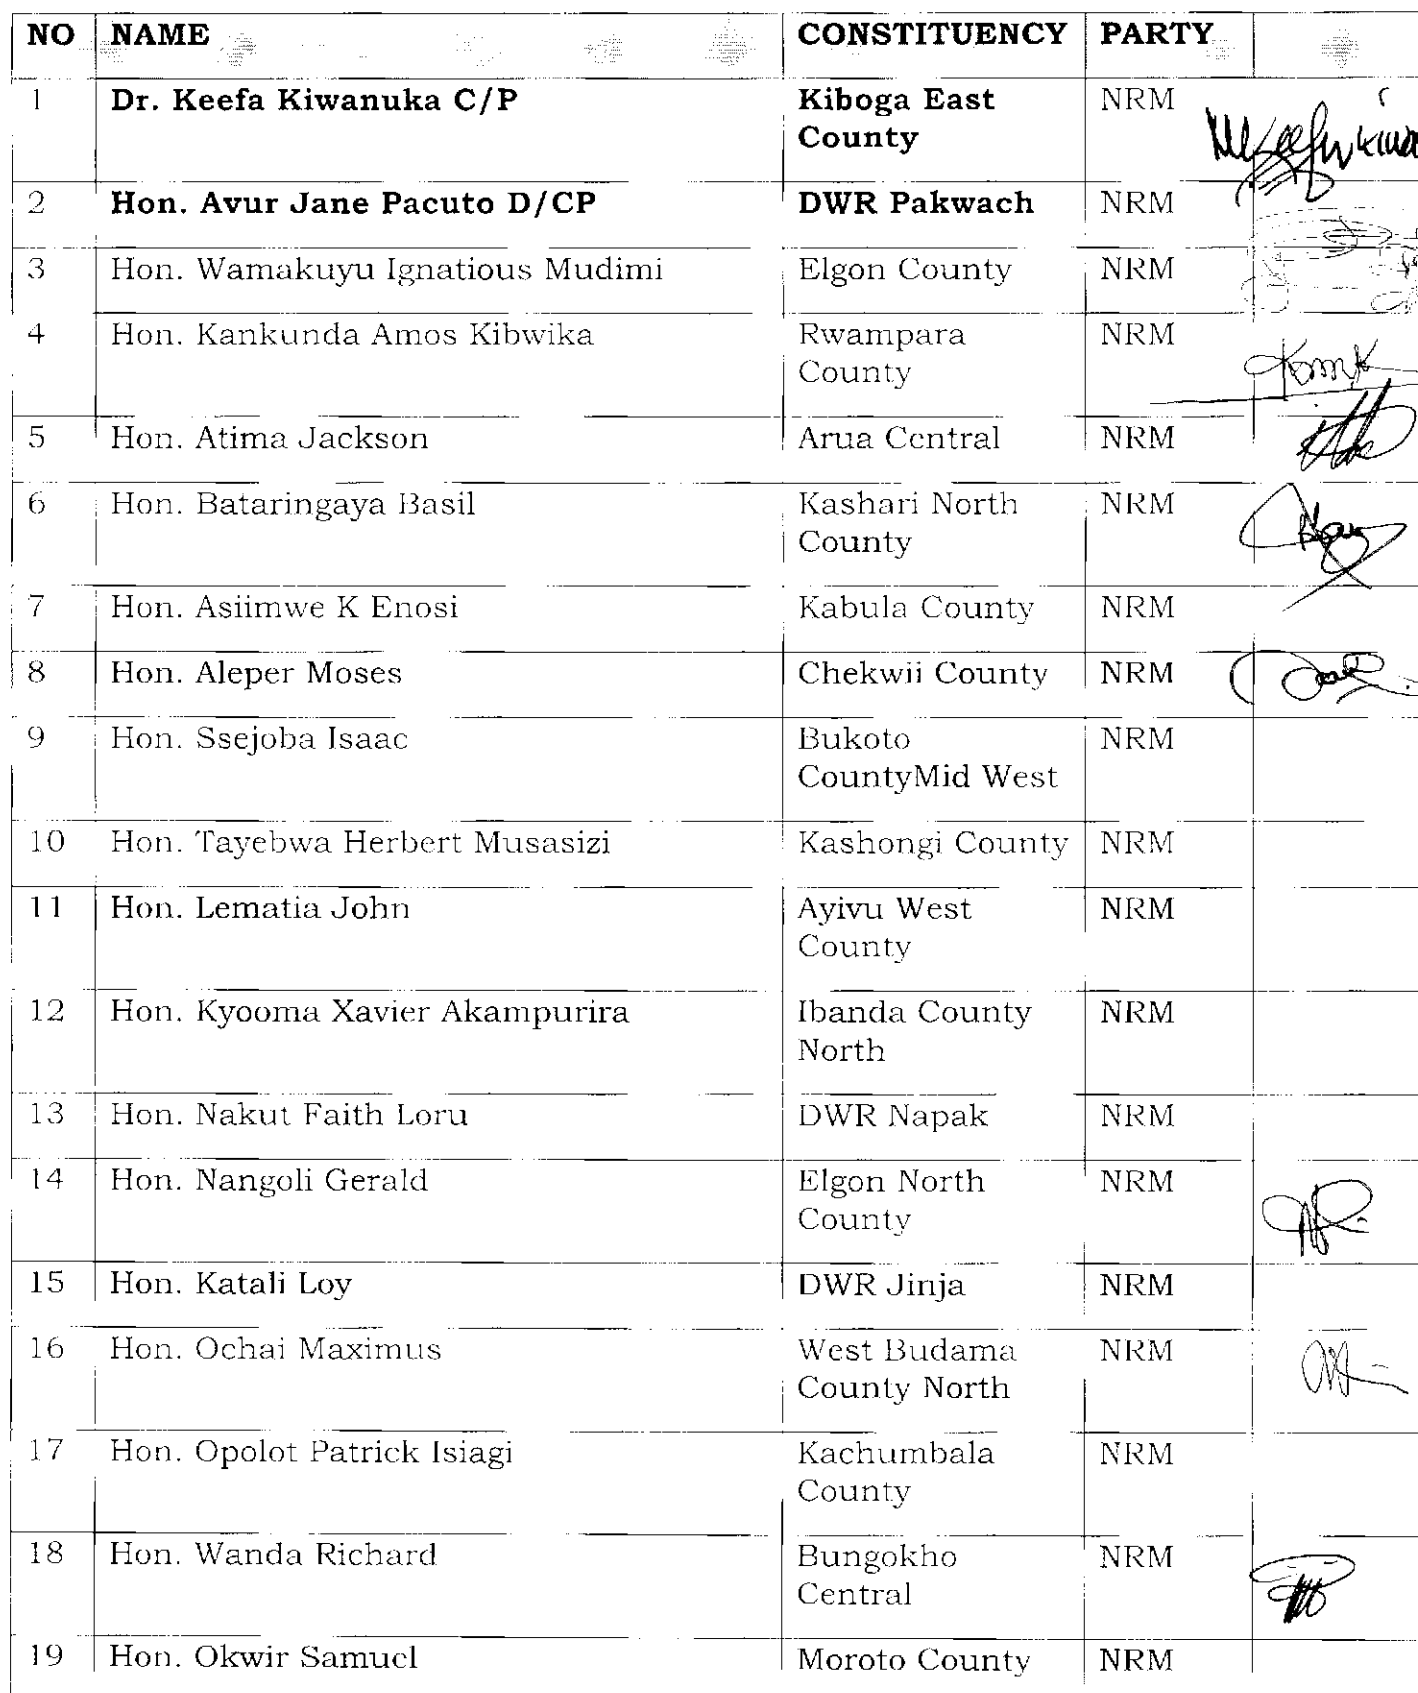 NO NAME CONSTITUENCY PARTY
1 Dr. Keefa Kiwanuka C/P Kiboga East NRM
County
2 Hon. Avur Jane Pacuto D/CP DWR Pakwach NRM
3 Hon. Wamakuyu Ignatious Mudimi Elgon County NRM
4 Hon. Kankunda Amos Kibwika Rwampara NRM
County
5 Hon. Atima Jackson Arua Central NRM
6 Hon. Bataringaya Basil Kashari North NRM
County
7 Hon. Asiimwe K Enosi Kabula County NRM
8 Hon. Aleper Moses Chekwii County NRM
9 Hon. Ssejoba Isaac Bukoto NRM
CountyMid West
10 Hon. Tayebwa Herbert Musasizi Kashongi County NRM
11 Hon. Lematia John Ayivu West NRM
County
12 Hon. Kyooma Xavier Akampurira Ibanda County NRM
North
13 Hon. Nakut Faith Loru DWR Napak NRM
14 Hon. Nangoli Gerald Elgon North NRM
County
15 Hon. Katali Loy DWR Jinja NRM
16 Hon. Ochai Maximus West Budama NRM
County North
17 Hon. Opolot Patrick Isiagi Kachumbala NRM
County
18 Hon. Wanda Richard Bungokho NRM
Central
19 Hon. Okwir Samuel Moroto County NRM